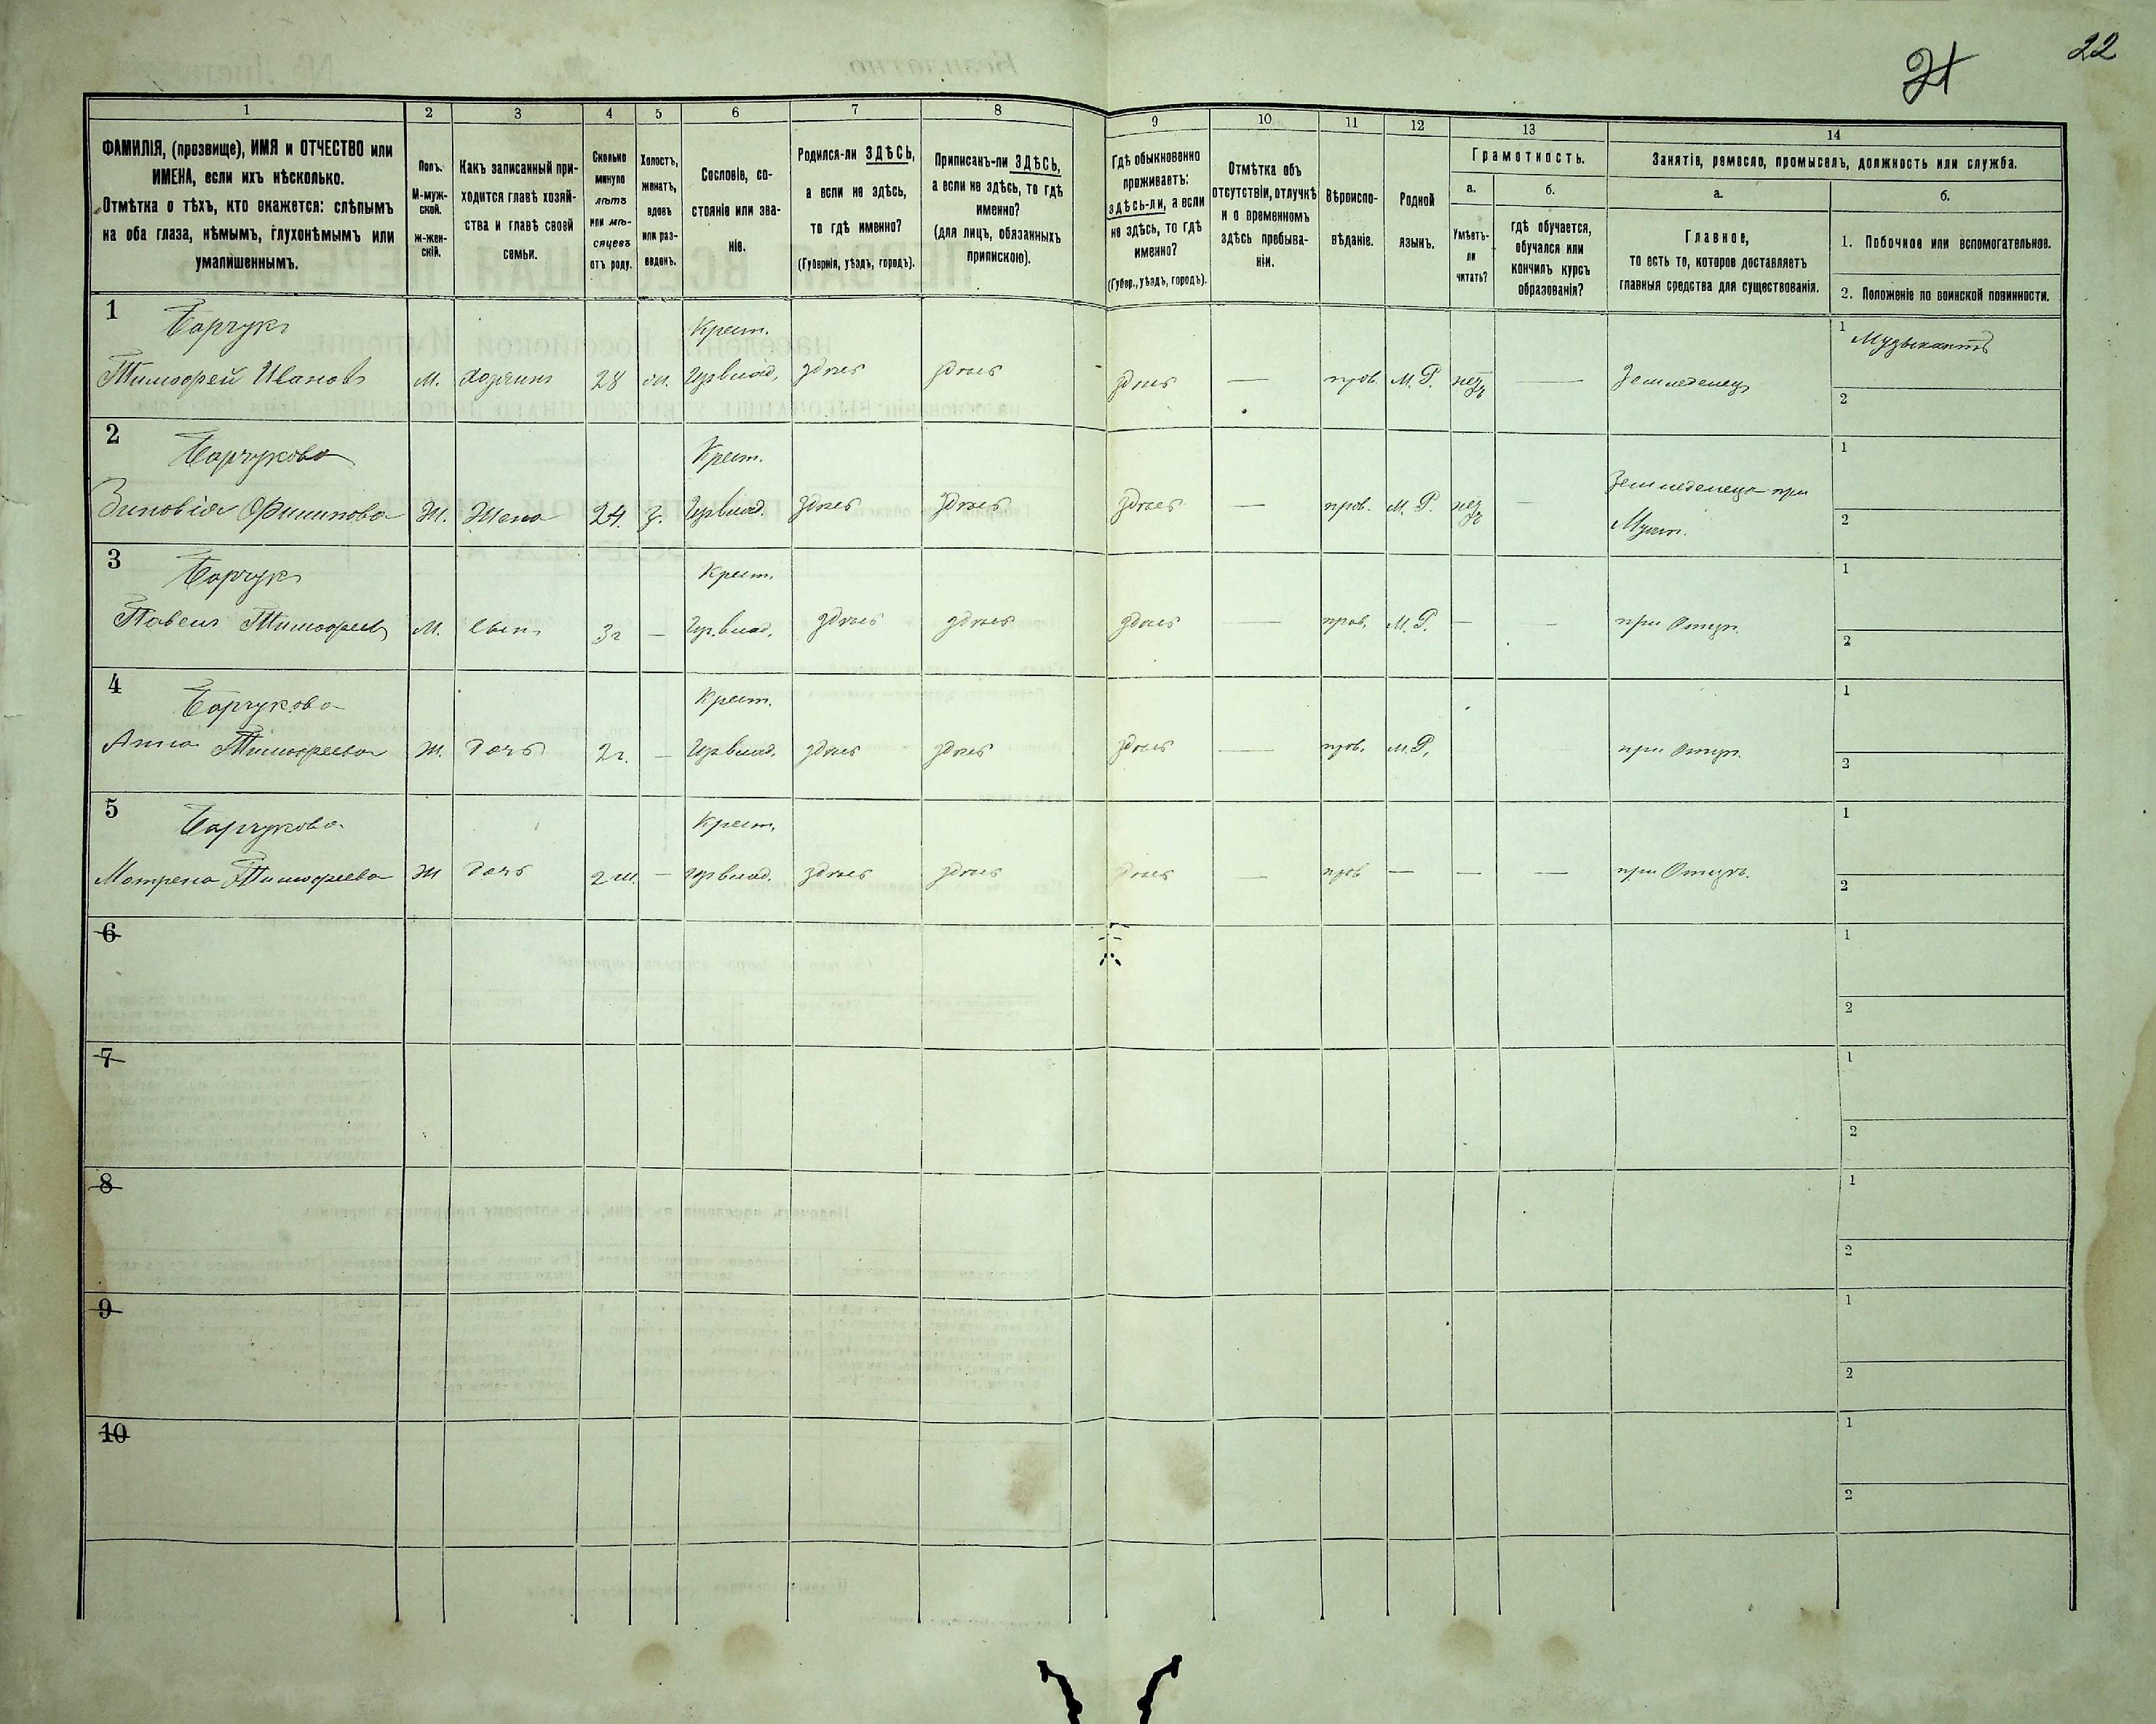 22
21
1
2
3
4
5
6
7
8
9
10
11
12
13
14
ФАМИЛІЯ, (прозвище), ИМЯ и ОТЧЕСТВО или
ИМЕНА, если ихъ нѣсколько.
Отмѣтка о тѣхъ, кто окажется: слѣпымъ
на оба глаза, нѣмымъ, глухонѣмымъ или
умалишеннымъ.
Полъ.
М-муж-
ской.
Ж-жен-
скій.
Какъ записанный при-
ходится главѣ хозяй-
ства и главѣ своей
семьи.
Сколько
минуло
лѣтъ
или мѣ-
сяцевъ
отъ роду.
Холостъ,
женатъ,
вдовъ
или раз-
веденъ.
Сословіе, со-
стояніе или зва-
ніе.
Родился-ли ЗДѢСЬ,
а если не здѣсь,
то гдѣ именно?
(Губернія, уѣздъ, городъ).
Приписанъ-ли ЗДѢСЬ,
а если не здѣсь, то гдѣ
именно?
(для лицъ, обязанныхъ
припискою).
Гдѣ обыкновенно
проживаетъ:
здѣсь-ли, а если
не здѣсь, то гдѣ
именно?
(Губер., уѣздъ, городъ).
Отмѣтка объ
отсутствіи, отлучкѣ
и о временномъ
здѣсь пребыва-
ніи.
Вѣроиспо-
вѣданіе.
Родной
языкъ.
Грамотность.
а.
Умѣетъ-
ли
читать?
б.
гдѣ обучается,
обучался или
кончилъ курсъ
образованія?
Занятіе, ремесло, промыселъ, должность или служба.
а.
Главное,
то есть то, которое доставляетъ
главныя средства для существованія.
б.
1. Побочное или вспомогательное.
2. Положеніе по воинской повинности.
1 Барчукъ Крест. 1 Музыкантъ
Тимофей Ивановъ М. Хозяинъ 28 здѣсь здѣсь здѣсь — прав. М. Р. — Земледелецъ
2
2 Барчукова Крест. 1
Зиновія Филипова Ж. Жена 24 здѣсь здѣсь здѣсь — прав. М. Р. — Земледелецъ при
2
3 Барчукъ Крест. 1
Павелъ Тимофеевъ М. Сынъ 3 г — здѣсь здѣсь здѣсь — прав. М. Р. — — при Отцѣ.
2
4 Барчукова Крест. 1
Анна Тимофеева Ж. дочь 2 г. — здѣсь здѣсь здѣсь — прав. М. Р. при Отцѣ.
2
5 Барчукова Крест. 1
Матрена Тимофеева Ж дочь 2 м. — здѣсь здѣсь здѣсь — прав — — — при Отцѣ.
2
6 1
2
7 1
2
8 1
2
9 1
2
10 1
2